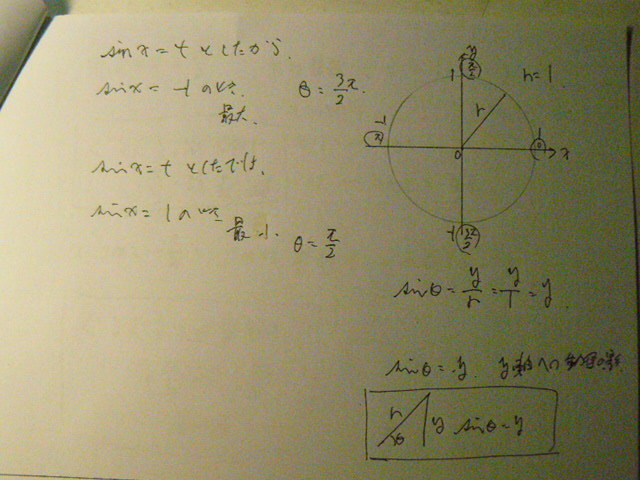 sinx = t としたから
sinx = -1 のとき
最大.
θ = 3π/2.
sinx = t としたでは、
sinx = 1 のとき
最小.
θ = π/2
y
π/2
1
r = 1
r
-1
π
0
1
0
x
-1
3π/2
sinθ = y/r = y/1 = y
sinθ = y. y軸への
r
θ
y sinθ = y